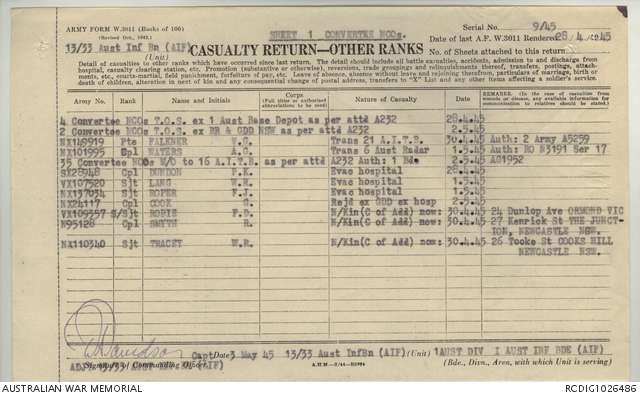 ARMY FORM W.3011 (Books of 100)
(Revised Oct., 1942.)
SHEET 1 CONVERTEE NCOs.
Serial No. 9/45
Date of last A.F. W.3011 Rendered 28/4/1945
13/33 Aust Inf Bn (AIF)
(Unit)
CASUALTY RETURN—OTHER RANKS
No. of Sheets attached to this return
Detail of casualties to other ranks which have occurred since last return. The detail should include all battle casualties, accidents, admission to and discharge from
hospital, casualty clearing station, etc, Promotion (substantive or otherwise), reversions, trade groupings and relinquishments thereof, transfers, postings, attach-
ments, etc., courts-martial, field punishment, forfeiture of pay, etc. Leave of absence, absence without leave and rejoining therefrom, particulars of marriage, birth or
death of children, alteration in next of kin and any consequential change of postal address, transfers to "X" List and any other items affecting a soldier's service.
Army No. Rank Name and Initials Corps (Full titles or authorised abbreviations to be used) Nature of Casualty Date REMARKS. (In the case of casualties from wounds or disease, any available information for communication to relatives should be stated.)
4 Convertee NCOs T.O.S. ex 1 Aust Base Depot as per attd A232 28.4.45
2 Convertee NCOs T.O.S. ex RR & GDD NSW as per attd A232 2.5.45
NX148919 Pte FALKNER V.C. Trans 21 A.I.T.B. 30.4.45 Auth: 2 Army A5259
NX101995 Cpl WATERS A.G. Trans 6 Aust Radar 1.5.45 Auth: HO N3191 Ser 17
35 Convertee NCOs M/O to 16 A.I.T.B. as per attd A232 Auth: 1 Bde 2.5.45 AG1952
SX28948 Cpl DUNDON P.K. Evac hospital 28.4.45
VX107520 Sjt LANG W.R. Evac hospital 1.5.45
NX137034 Sjt ROPER F.J. Evac hospital 1.5.45
NX24117 Cpl COOK G. Rejd ex GDD ex hosp 2.5.45
VX109357 S/Sjt ROBIE F.D. N/Kin(C of Add) now: 30.4.45 24 Dunlop Ave ORMOND VIC
N95128 Cpl SMYTH R. N/Kin(C of Add) now: 30.4.45 27 Kenrick St THE JUNCT-
ION, NEWCASTLE NSW.
NX110340 Sjt TRACEY W.R. N/Kin(C of Add) now: 30.4.45 26 Tooke St COOKS HILL
NEWCASTLE NSW.
Davidson Capt Date 3 May 45 13/33 Aust InfBn (AIF) (Unit) 1AUST DIV 1 AUST INF BDE (AIF)
Signature of Commanding Officer
(Bde., Divn., Area, with which Unit is serving)
AUSTRALIAN WAR MEMORIAL
RCDIG1026486